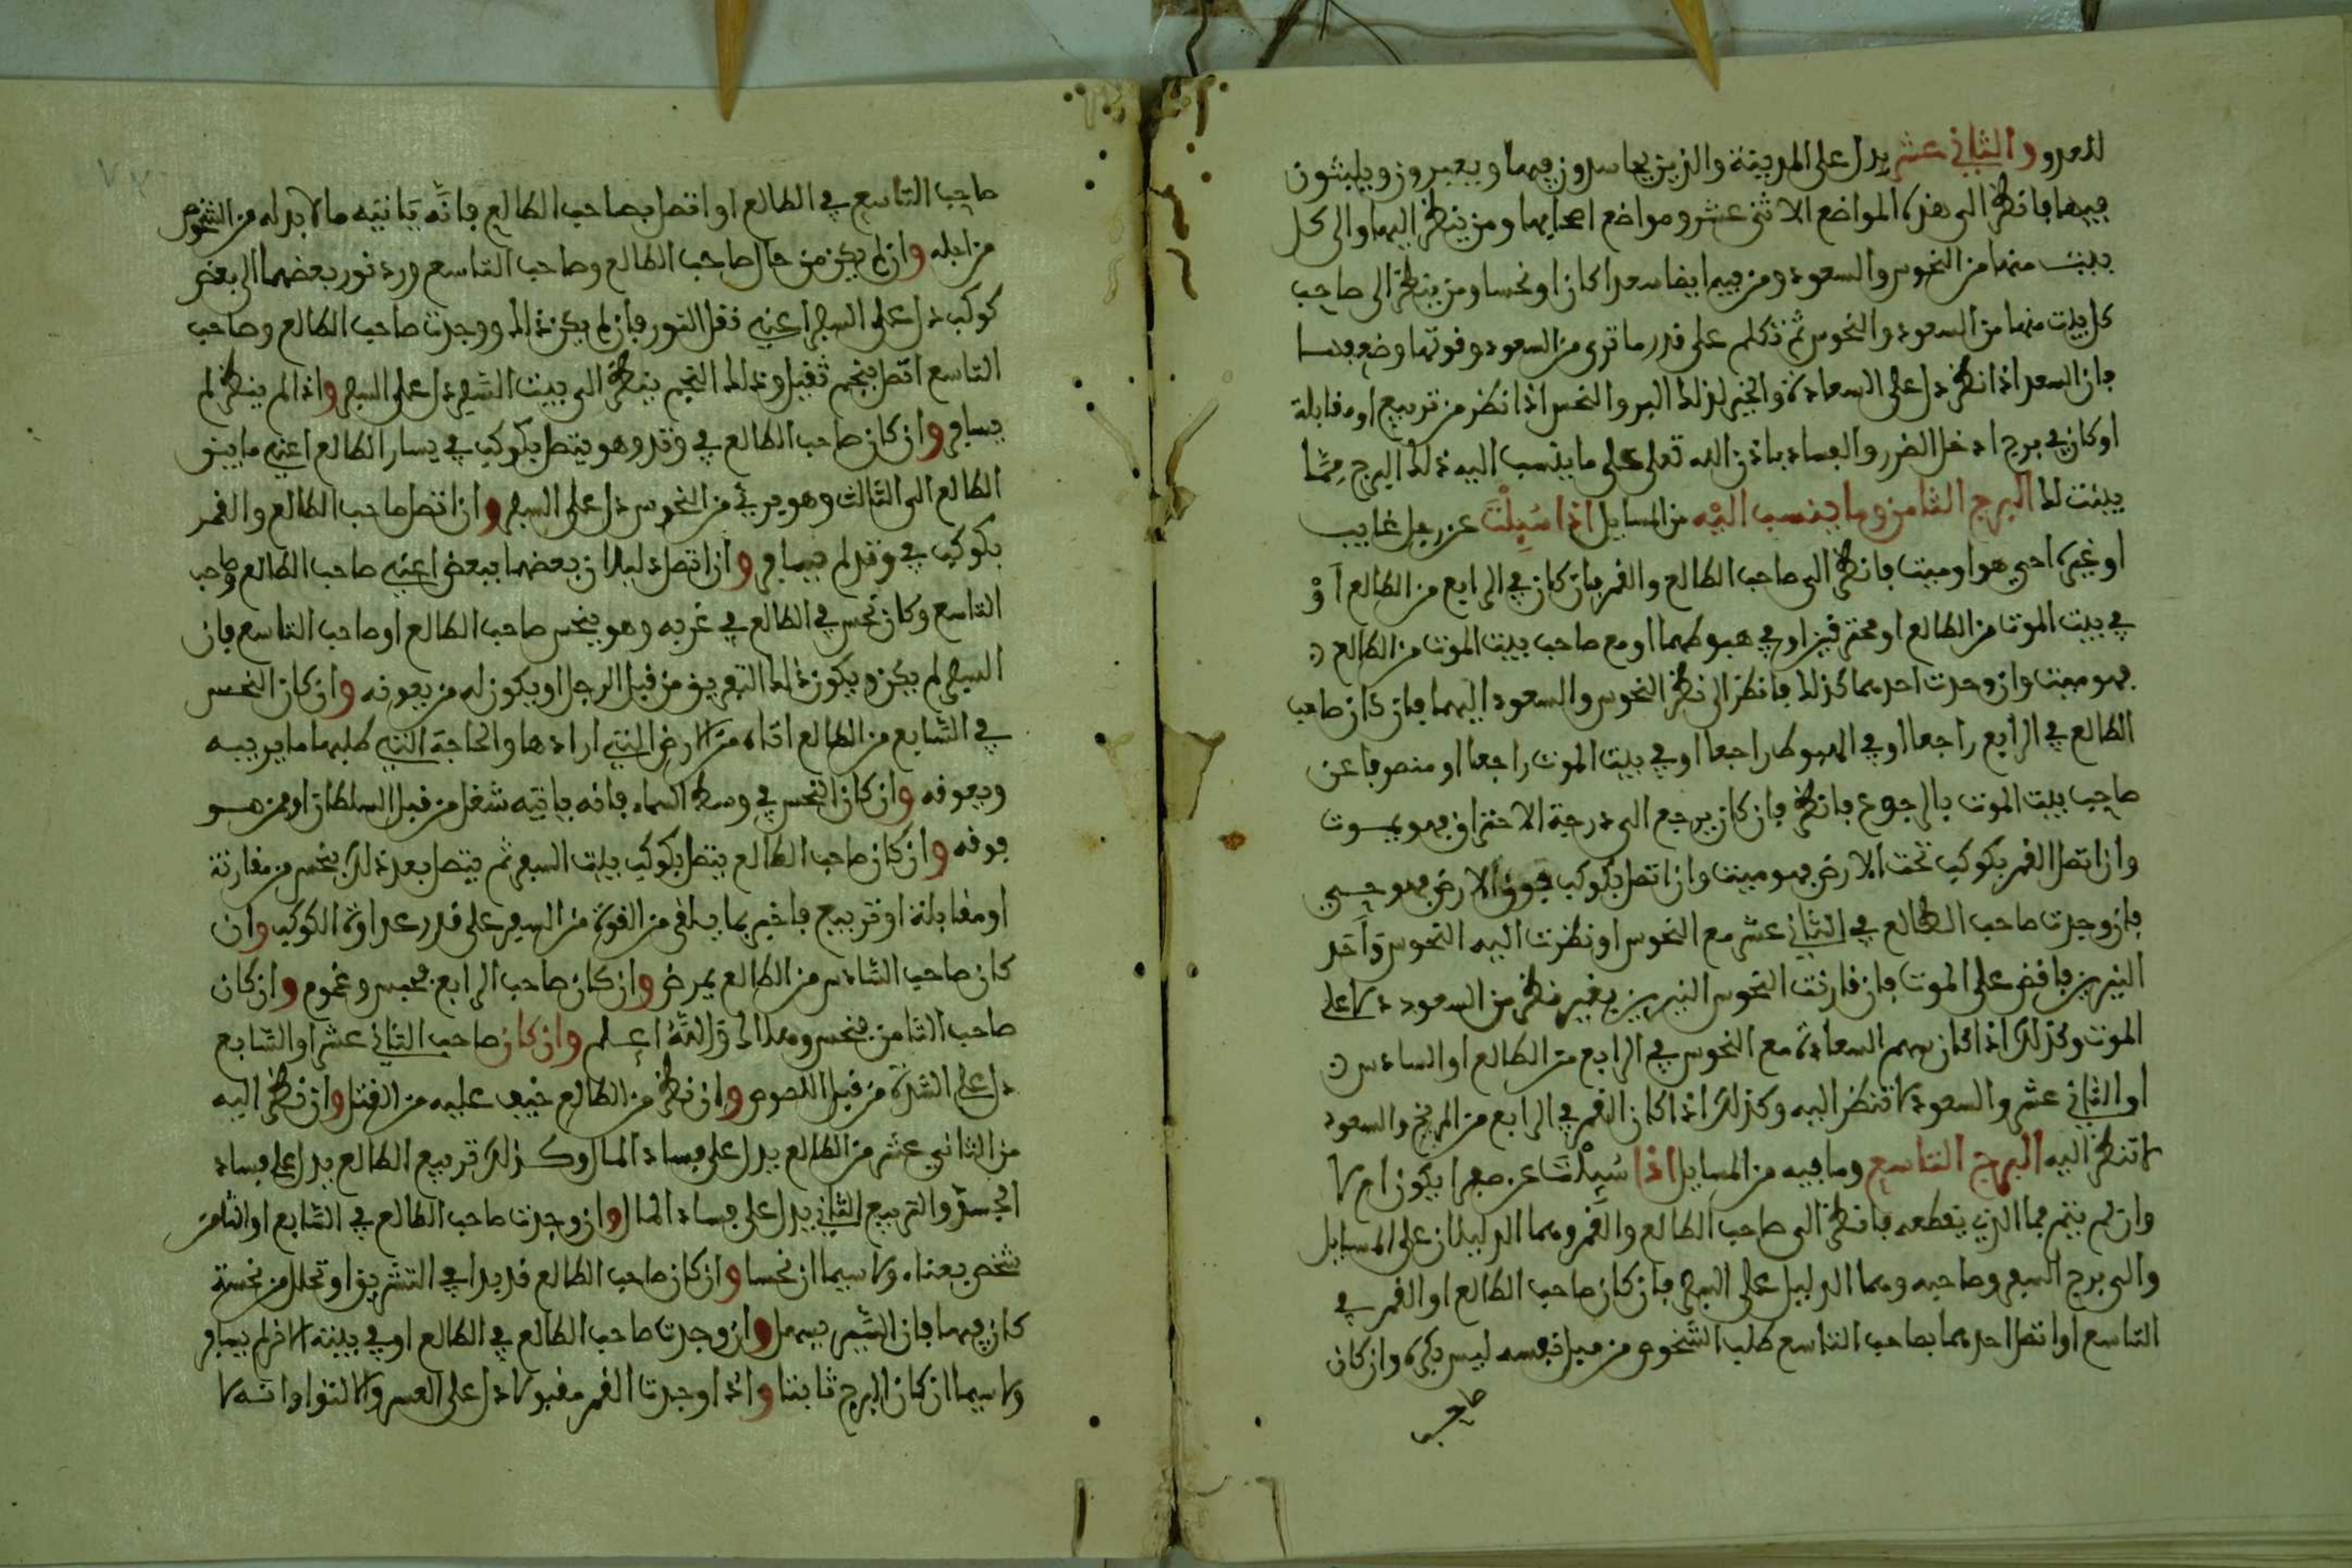 للعدو والثاني عشر يدل على المدينة والذين يحاسدون فيها ويعبرون ويلبثون
فيها فانظر الى هذه المواضع الاثنى عشر ومواضع اصحابها ومن ينظر اليها والى كل
بيت منها من النحوس والسعود ومن فيها ايضا سعدا كان او نحسا ومن ينظر الى صاحب
كل بيت منها من السعود والنحوس ثم تكلم على قدر ما ترى من السعود وقوتها وضعفها
فان السعد اذا نظر دل على السعادة والخير لذلك البر والنحس اذا نظر من تربيع او مقابلة
او كان في برج ادخل الضرر والفساد باذن الله تعلى على ما ينسب اليه ذلك البرج مما
بينت لك البرج الثامن وما ينسب اليه من المسايل اذا سيلت عن رجل غايب
او غيره احي هو او ميت فانظر الى صاحب الطالع والقمر فان كان في الرابع من الطالع او
في بيت الموت من الطالع او محترقين او في هبوطهما او مع صاحب بيت الموت من الطالع
فهو ميت وان وجدت احدهما كذلك فانظر الى نظر النحوس والسعود اليهما فان كان صاحب
الطالع في الرابع راجعا او في الهبوط راجعا او في بيت الموت راجعا او منصوبا عن
صاحب بيت الموت بالرجوع فانظر فان كان يرجع الى درجة الاحتراق فهو يموت
وان اتصل القمر بكوكب تحت الارض فهو ميت وان اتصل بكوكب فوق الارض فهو حي
فان وجدت صاحب الطالع في الثاني عشر مع النحوس او نظرت اليه النحوس واحد
النيرين فاقض على الموت فان قارنت النحوس النيرين بغير نظر من السعود دلا على
الموت وكذلك اذا كان سهم السعادة مع النحوس في الرابع من الطالع او السادس
او الثاني عشر والسعود لا تنظر اليه وكذلك اذا كان القمر في الرابع من المريخ والسعود
لا تنظر اليه البرج التاسع وما فيه من المسايل اذا سيلت عن سفر ايكون ام لا
وان لم يتم فما الذي يقطعه فانظر الى صاحب الطالع والقمر وهما الدليلان على المسايل
والى برج السفر وصاحبه وهما الدليل على السفر فان كان صاحب الطالع او القمر في
التاسع او اتصل احدهما بصاحب التاسع طلب الشخوص من قبل نفسه ليس بكره وان كان
صاحب
صاحب التاسع في الطالع او اتصل بصاحب الطالع فانه يانيه ما لا بد له من الشخوص
من اجله وان لم يكن من حال صاحب الطالع وصاحب التاسع ورد نور بعضهما الى بعض
كوكب دل على السفر اعني نقل النور فان لم يكن ذلك ووجدت صاحب الطالع وصاحب
التاسع اتصل بنجم ثقيل وذلك النجم ينظر الى بيت السفر دل على السفر واذا لم ينظر لم
يسافر وان كان صاحب الطالع في وتد وهو يتصل بكوكب في يسار الطالع اعني ما بين
الطالع الى الثالث وهو بريء من النحوس دل على السفر وان اتصل صاحب الطالع والقمر
بكوكب في وتد لم يسافر وان اتصل دليلان بعضهما ببعض اعني صاحب الطالع وصاحب
التاسع وكان نحس في الطالع في غربه وهو ينحس صاحب الطالع او صاحب التاسع فان
السفر لم يكن ويكون ذلك التعويق من قبل الرجل او يكون له من يعوقه وان كان النحس
في السابع من الطالع اتاه من الارض التي ارادها والحاجة التي طلبها ما يريبه
ويعوقه وان كان النحس في وسط السماء فانه ياتيه شغل من قبل السلطان او ممن هو
فوقه وان كان صاحب الطالع يتصل بكوكب ببيت السفر ثم يتصل بعد ذلك بنحس من مقارنة
او مقابلة او تربيع فاخبر بما يلقى من القوة من السفر على قدر عداوة الكوكب وان
كان صاحب السادس من الطالع يمرض وان كان صاحب الرابع فحبس وغموم وان كان
صاحب الثامن فنحس وهلاك والله اعلم وان كان صاحب الثاني عشر او السابع
دل على الشدة من قبل اللصوص وان نظر من الطالع خيف عليه من القتل وان نظر اليه
من الثاني عشر من الطالع يدل على فساد المال وكذلك تربيع الطالع يدل على فساد
الجسد والتربيع الثاني يدل على فساد المال وان وجدت صاحب الطالع في السابع او الثامن
شخص بعناه ولا سيما ان نحسا وان كان صاحب الطالع قد بدا في التشريق او تحلل من نحسة
كان فيها فان السفر يسهل وان وجدت صاحب الطالع في الطالع او في بيته الاخر لم يسافر
ولا سيما ان كان البرج ثابتا واذا وجدت القمر مقبولا دل على العسر والالتوا وانه لا